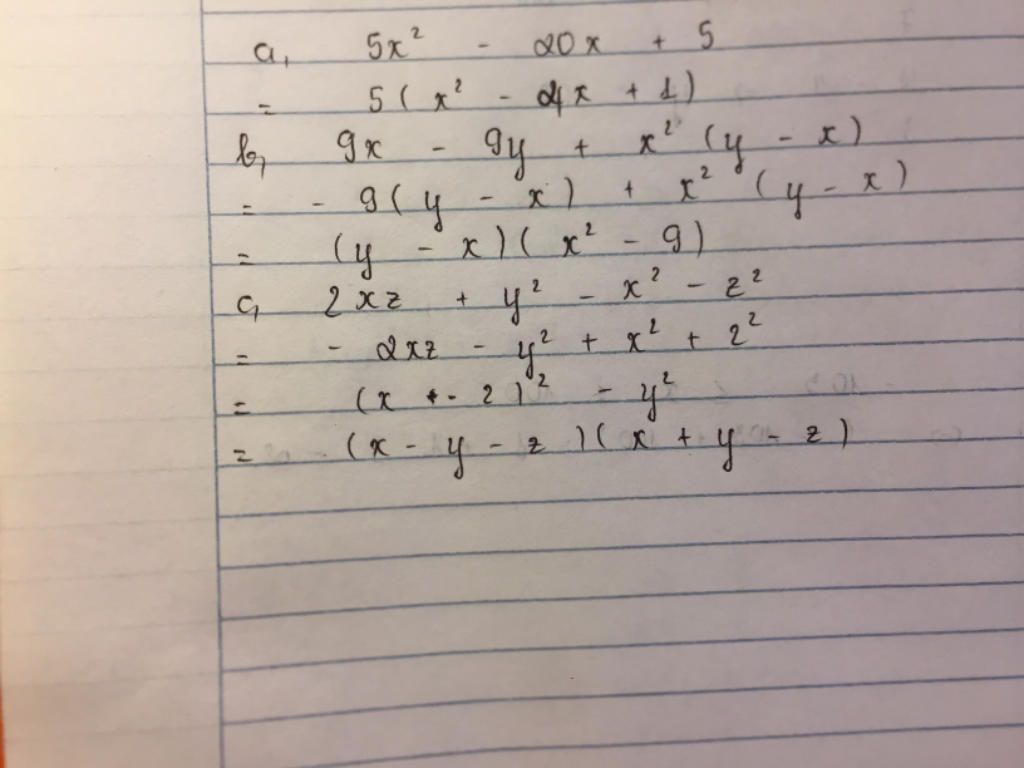 a, 5x² - 20x + 5
= 5 ( x² - 4x + 1 )
b, 9x - 9y + x² (y - x)
= - 9 ( y - x ) + x² ( y - x )
= (y - x ) ( x² - 9 )
c, 2xz + y² - x² - z²
= - 2xz - y² + x² + z²
= (x - z )² - y²
= (x - y - z ) ( x + y - z )